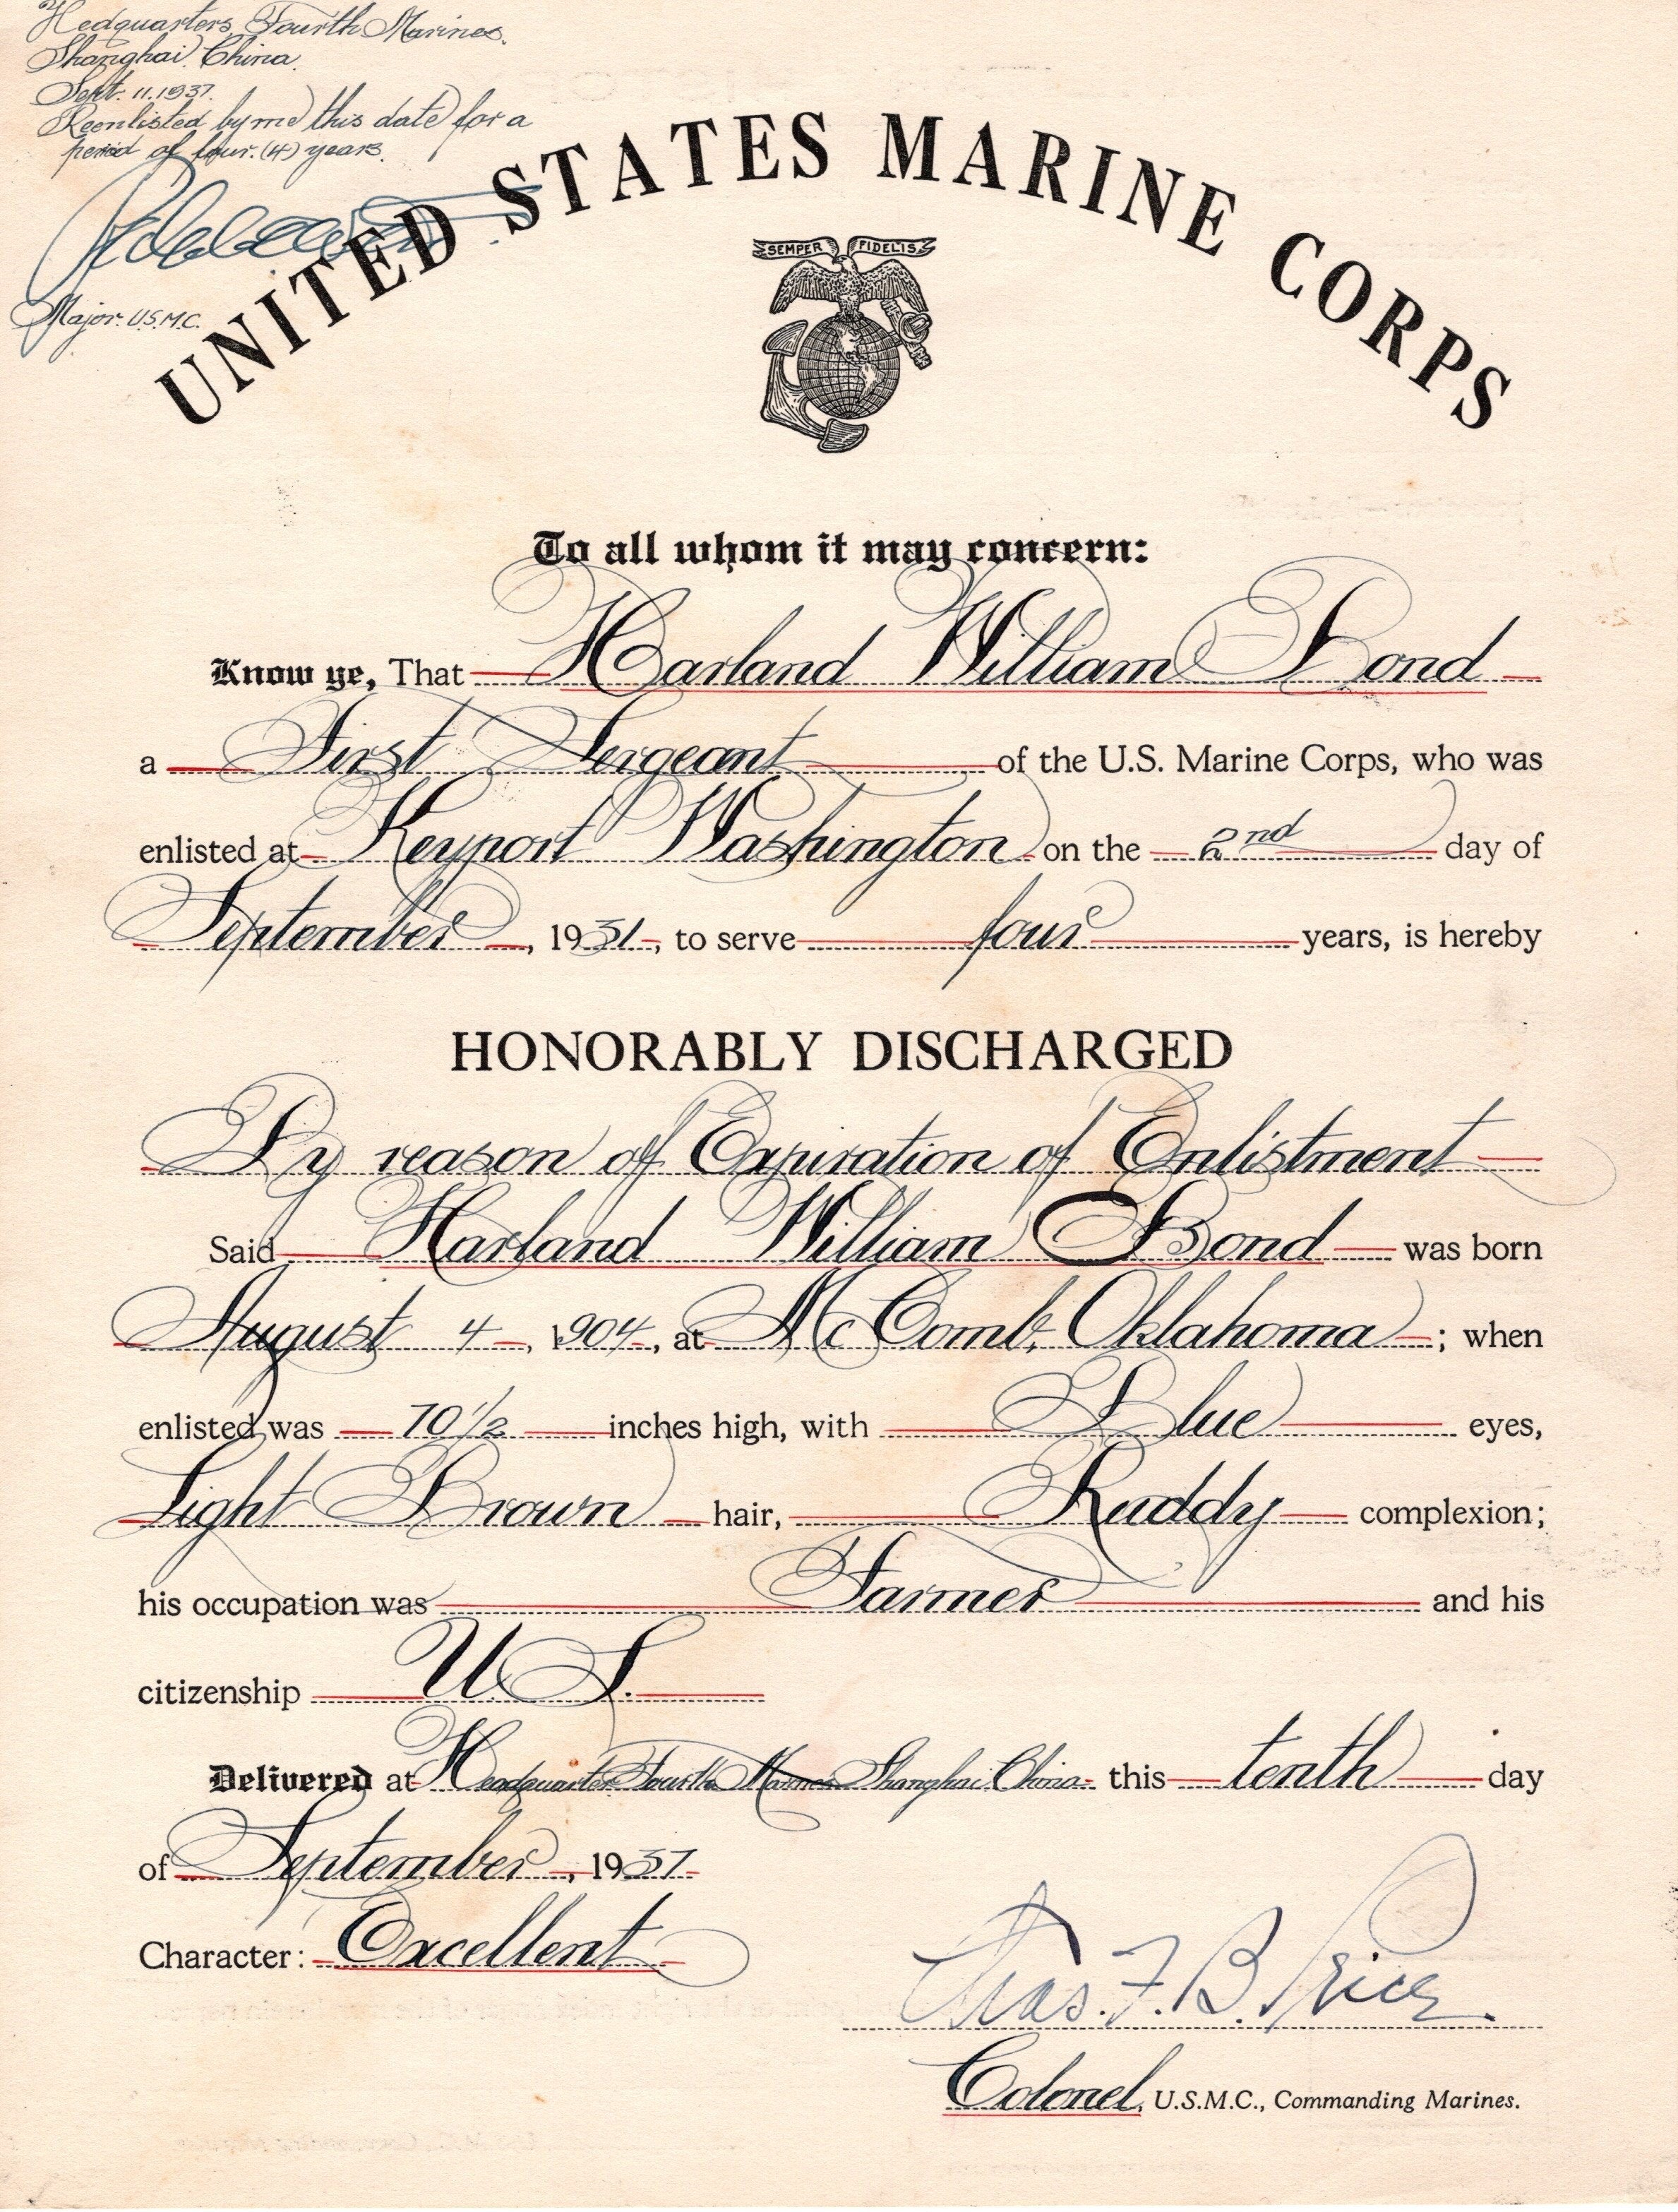 Hedquarters, Fourth Marines.
Shanghai. China.
Sept. 11. 1937.
Reenlisted by me this date for a
period of four. (4) years.
Major. U.S.M.C.
UNITED STATES MARINE CORPS
SEMPER FIDELIS
To all whom it may concern:
Know ye, That Harland William Bond
a First Sergeant of the U.S. Marine Corps, who was
enlisted at Keyport Washington on the 2nd day of
September, 1931, to serve four years, is hereby
HONORABLY DISCHARGED
By reason of Expiration of Enlistment
Said Harland William Bond was born
August 4, 1904, at McComb, Oklahoma; when
enlisted was 70 1/2 inches high, with Blue eyes,
Light Brown hair, Ruddy complexion;
his occupation was Farmer and his
citizenship U.S.
Delivered at Headquarters Fourth Marines Shanghai China this tenth day
of September, 1937
Character: Excellent
Chas. F. B. Price.
Colonel, U.S.M.C., Commanding Marines.